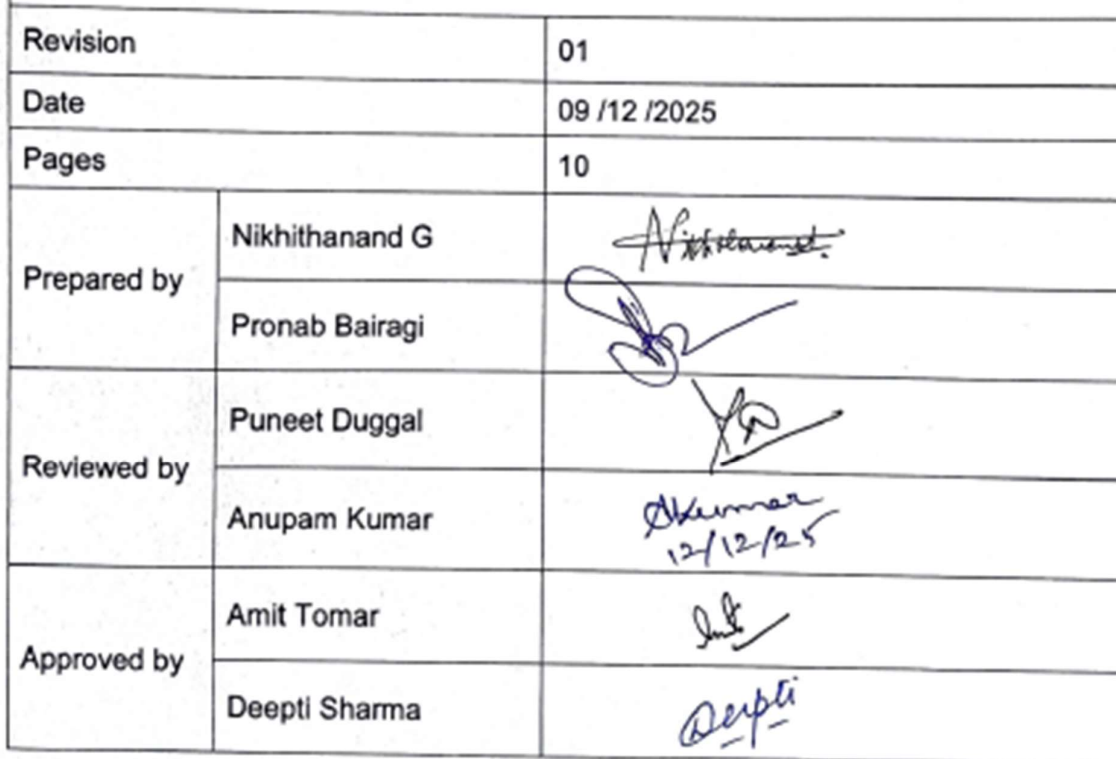 Revision 01
Date 09 /12 /2025
Pages 10
Prepared by
Nikhithanand G Nikhithanand.
Pronab Bairagi
Reviewed by
Puneet Duggal
Anupam Kumar AKumar
12/12/25
Approved by
Amit Tomar Amit
Deepti Sharma Deepti